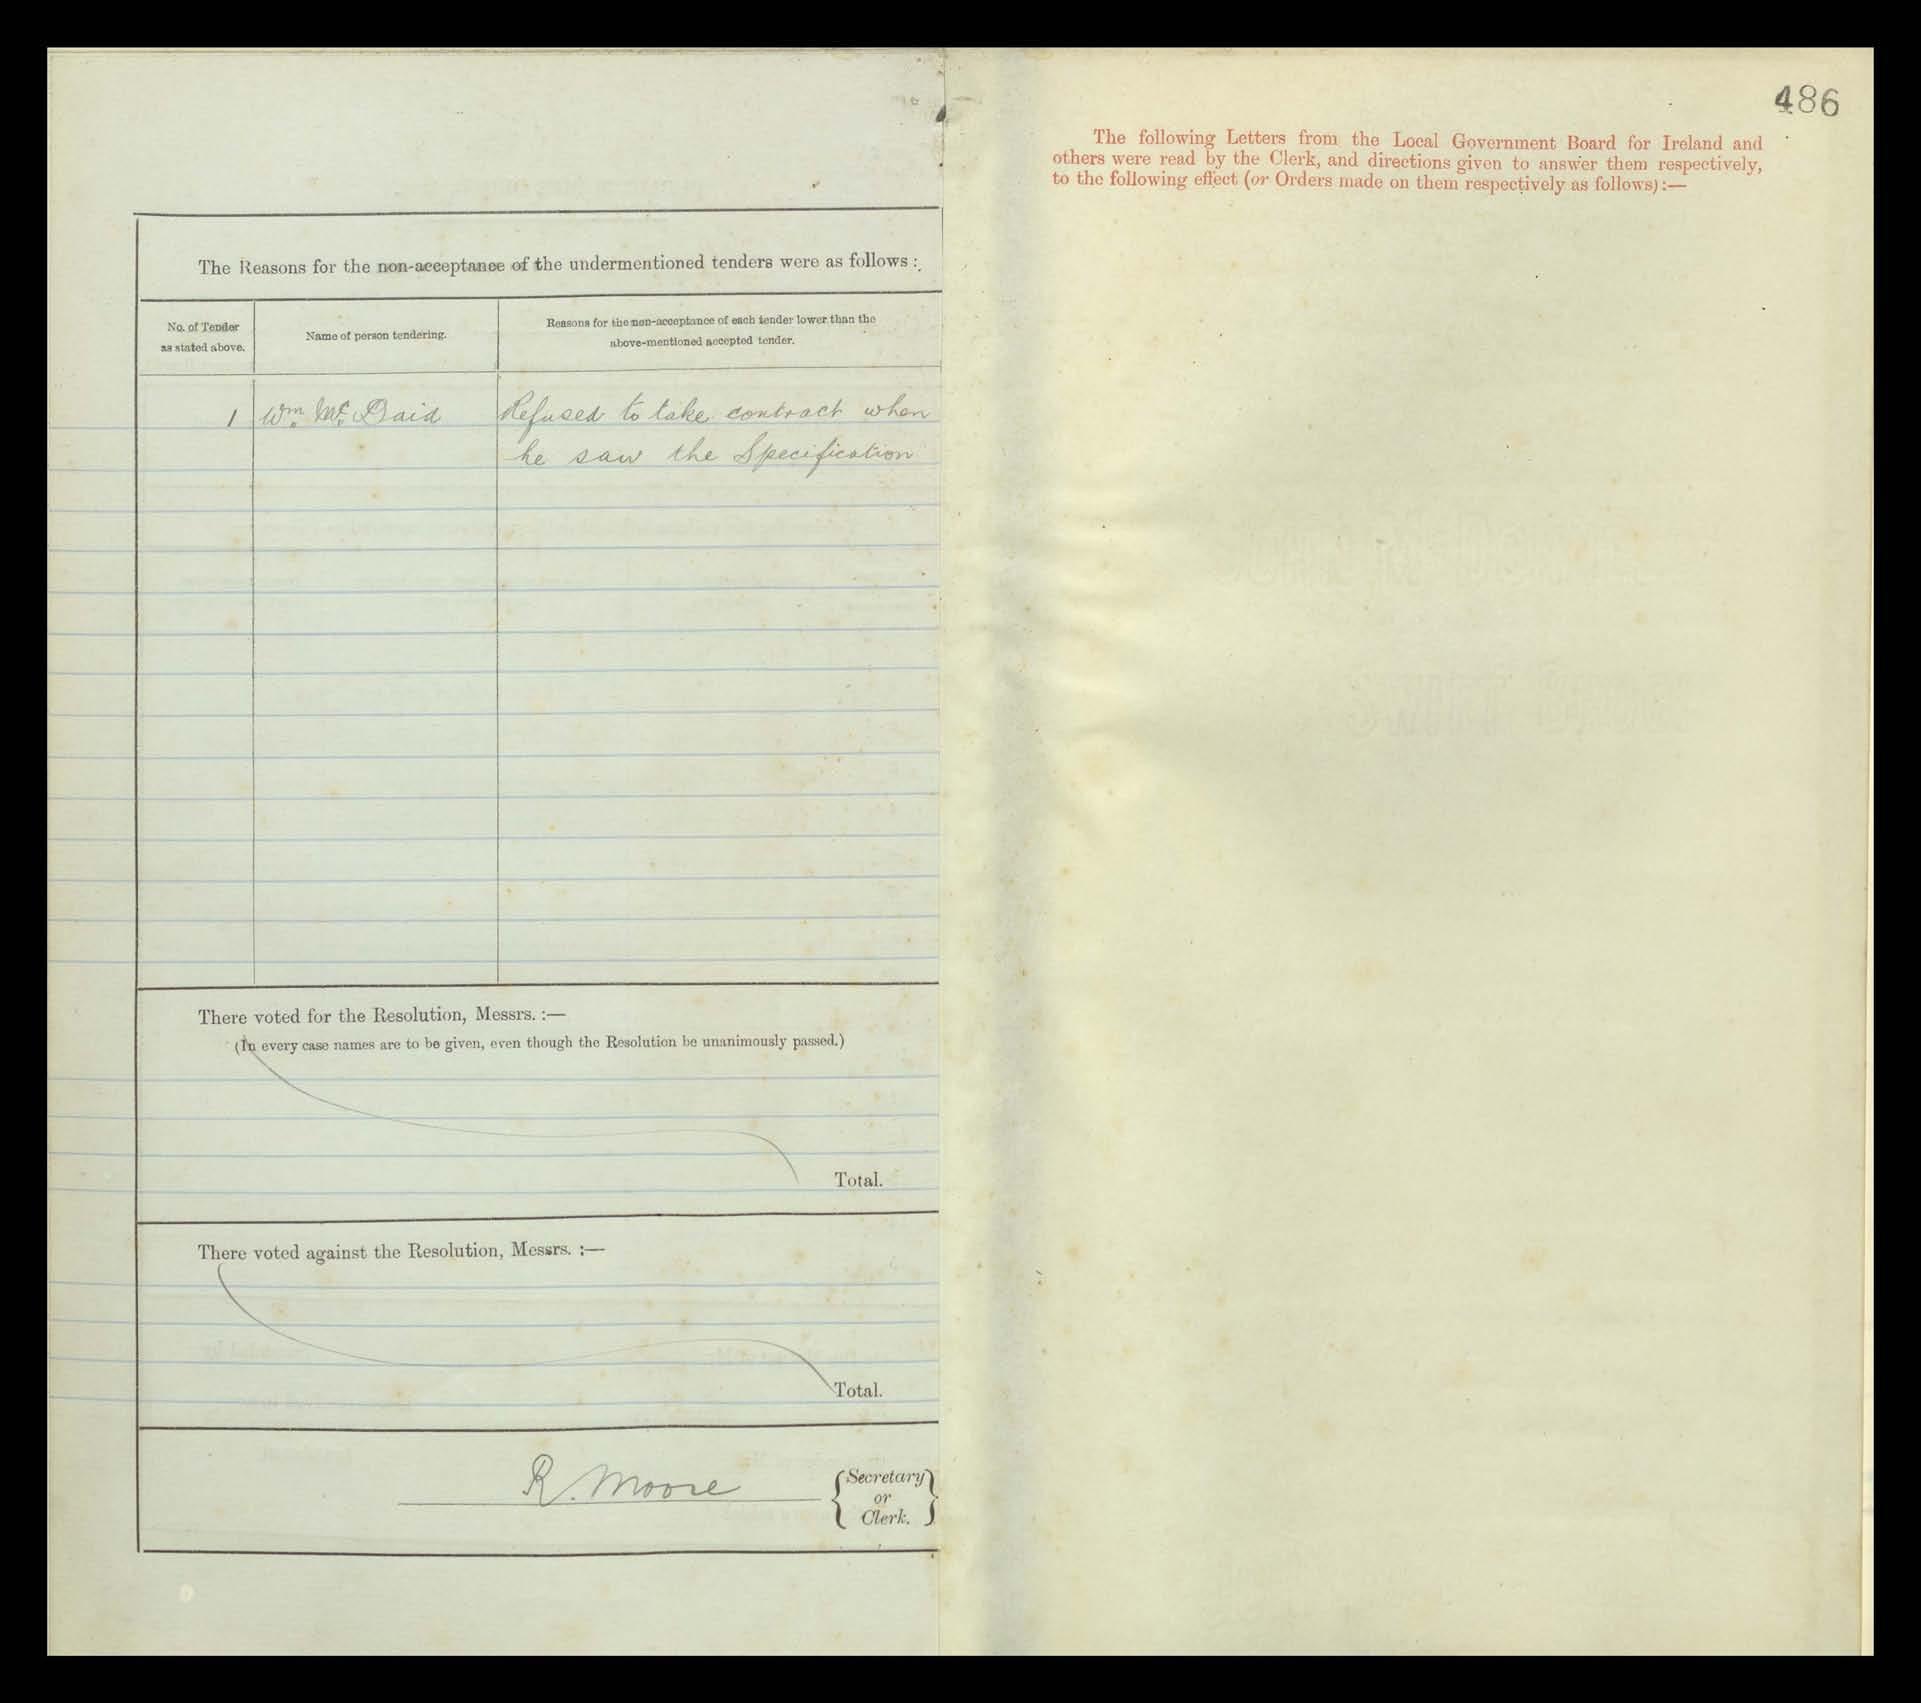 The Reasons for the non-acceptance of the undermentioned tenders were as follows :
No. of Tender
as stated above.
Name of person tendering.
Reasons for the non-acceptance of each tender lower than the
above-mentioned accepted tender.
1 Wm. Mc. Daid Refused to take contract when
he saw the Specification
There voted for the Resolution, Messrs. :—
(In every case names are to be given, even though the Resolution be unanimously passed.)
Total.
There voted against the Resolution, Messrs. :—
Total.
R. Moore
{Secretary
or
Clerk.}
486
The following Letters from the Local Government Board for Ireland and
others were read by the Clerk, and directions given to answer them respectively,
to the following effect (or Orders made on them respectively as follows) :—